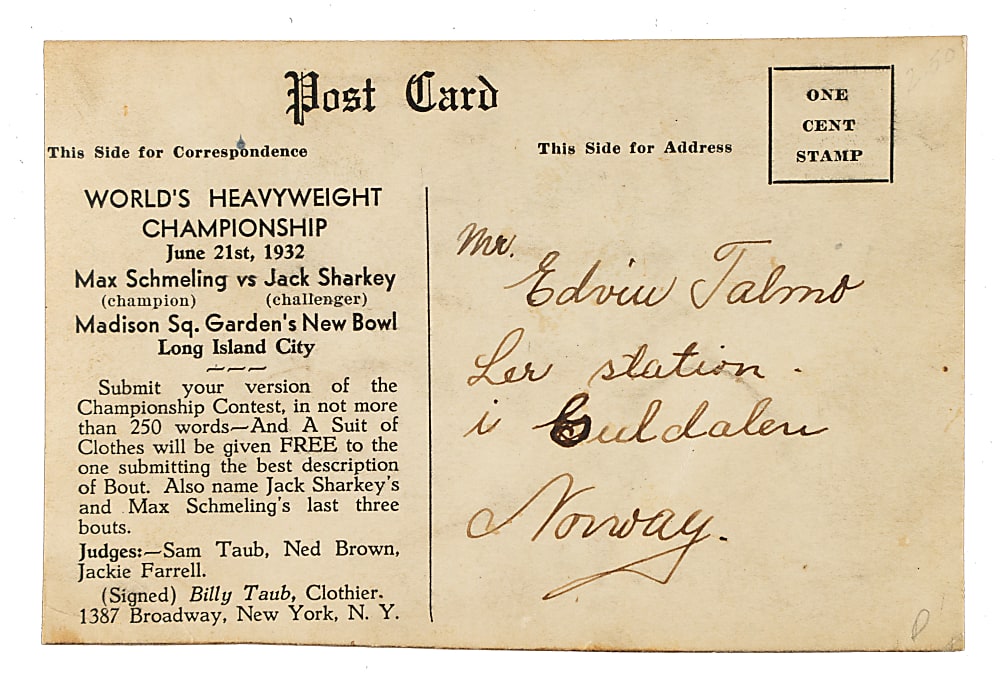 Post Card
This Side for Correspondence
This Side for Address
ONE
CENT
STAMP
WORLD'S HEAVYWEIGHT
CHAMPIONSHIP
June 21st, 1932
Max Schmeling vs Jack Sharkey
(champion) (challenger)
Madison Sq. Garden's New Bowl
Long Island City
Submit your version of the
Championship Contest, in not more
than 250 words—And A Suit of
Clothes will be given FREE to the
one submitting the best description
of Bout. Also name Jack Sharkey's
and Max Schmeling's last three
bouts.
Judges:—Sam Taub, Ned Brown,
Jackie Farrell.
(Signed) Billy Taub, Clothier.
1387 Broadway, New York, N. Y.
Mr.
Edvin Talmo
Ler station.
i Guldalen
Norway.